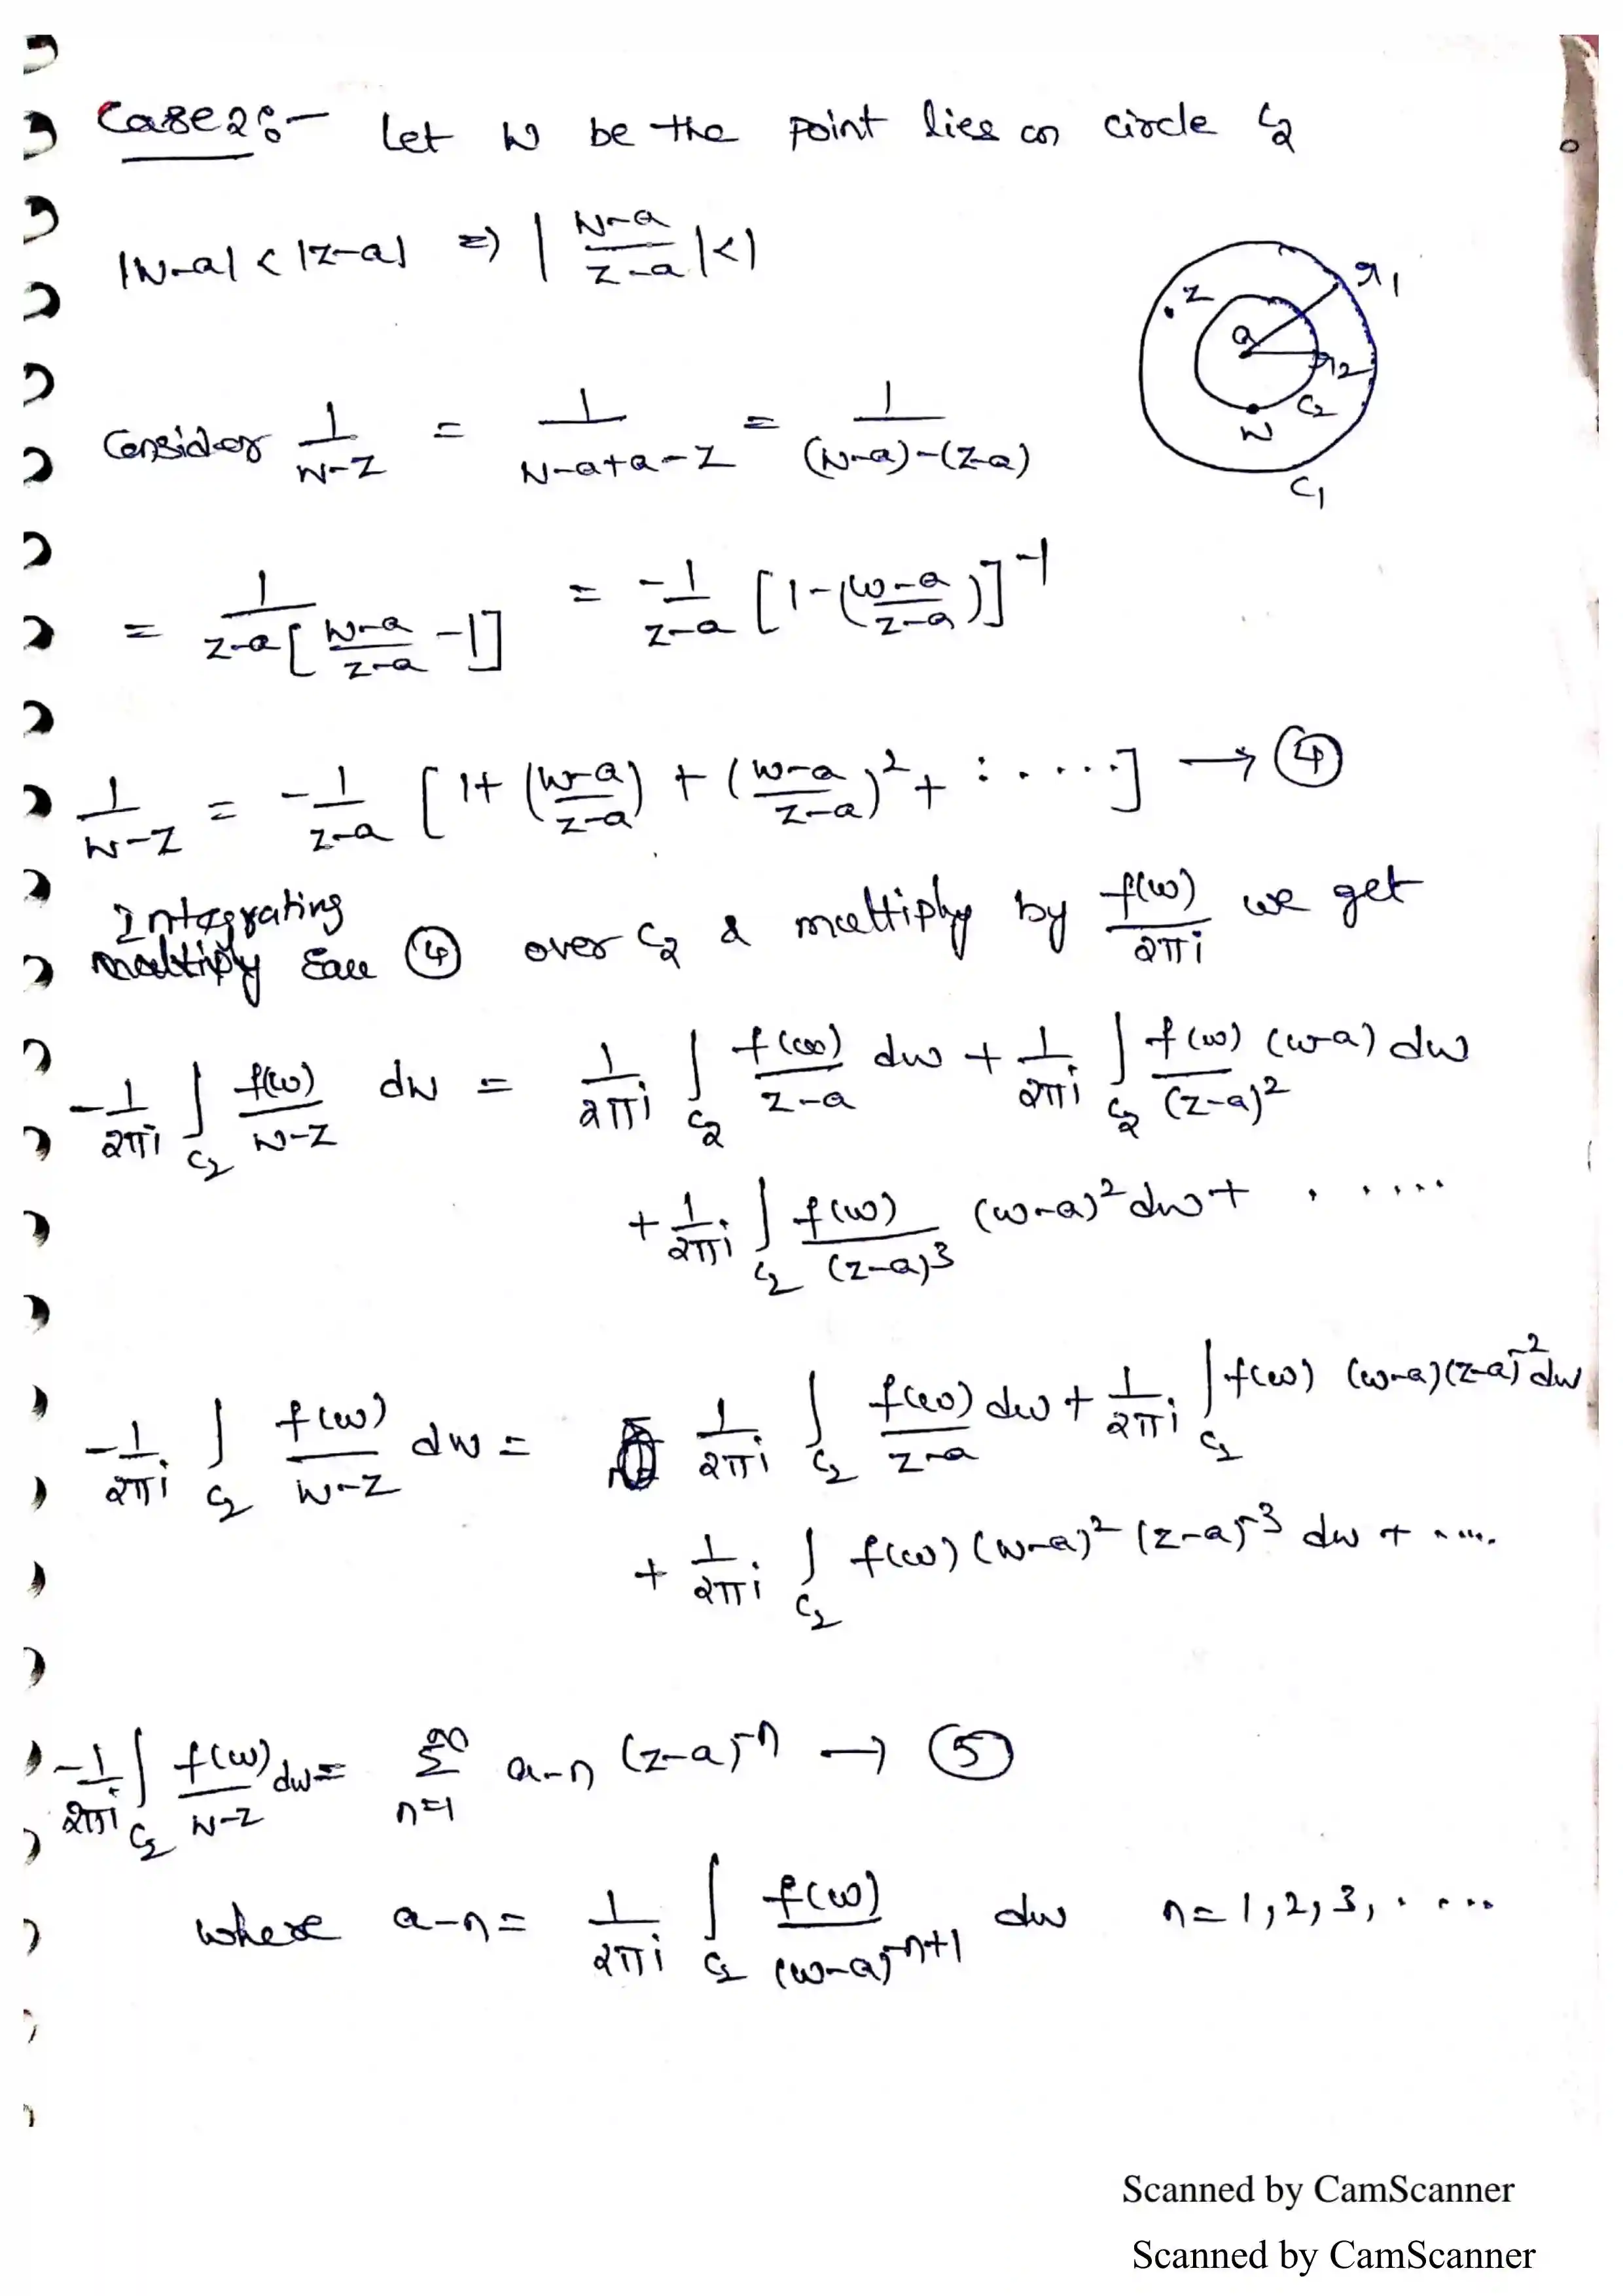 Case 2 :- Let w be the point lies on circle C₂
|w-a| < |z-a| ⇒ | (w-a)/(z-a) | < 1
z a r₁ r₂ C₂ w C₁
Consider 1/(w-z) = 1/(w-a+a-z) = 1/((w-a)-(z-a))
= 1/(z-a[(w-a)/(z-a) -1]) = -1/(z-a) [1-((w-a)/(z-a))]⁻¹
1/(w-z) = -1/(z-a) [1+((w-a)/(z-a)) + ((w-a)/(z-a))² + ......] → ④
Integrating
multiply Eqn ④ over C₂ & multiply by f(w)/2πi we get
-1/2πi ∫_C₂ f(w)/(w-z) dw = 1/2πi ∫_C₂ f(w)/(z-a) dw + 1/2πi ∫_C₂ f(w)/(z-a)² (w-a) dw
+ 1/2πi ∫_C₂ f(w)/(z-a)³ (w-a)² dw + .....
-1/2πi ∫_C₂ f(w)/(w-z) dw = 1/2πi ∫_C₂ f(w)/(z-a) dw + 1/2πi ∫_C₂ f(w) (w-a)(z-a)⁻² dw
+ 1/2πi ∫_C₂ f(w) (w-a)² (z-a)⁻³ dw + .....
-1/2πi ∫_C₂ f(w)/(w-z) dw = ∑_{n=1}^∞ a-n (z-a)⁻ⁿ → ⑤
where a-n = 1/2πi ∫_C₂ f(w)/(w-a)⁻ⁿ⁺¹ dw n = 1,2,3, .....
Scanned by CamScanner
Scanned by CamScanner